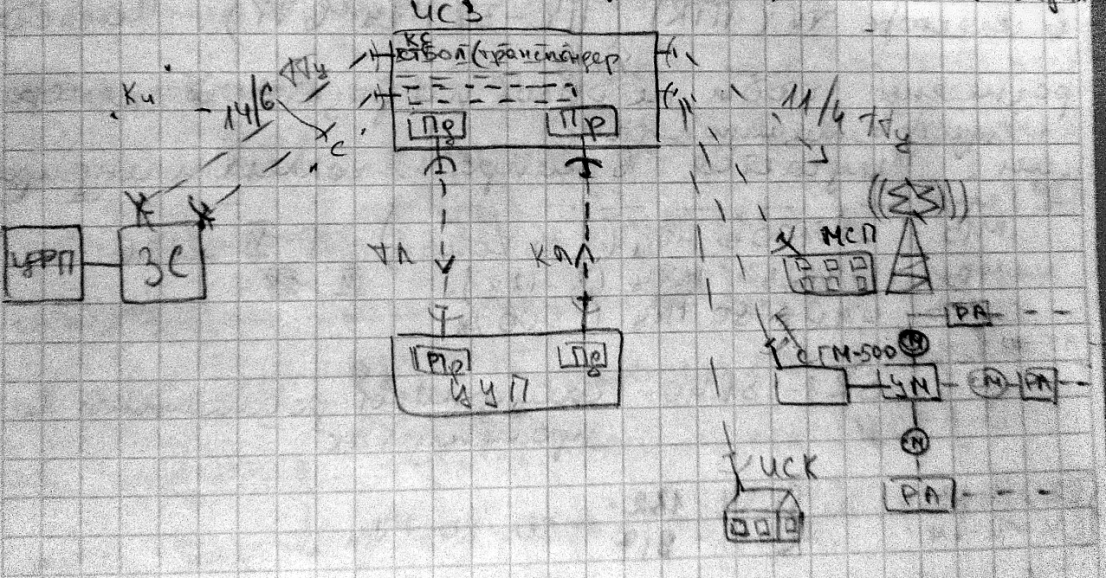 ИСЗ
КС
ствол (транспондер
Ku
14/6 ГГц
С
Пд
Пр
11/4 ГГц
ЦФРП
ЗС
ТЛ
КЛ
МСП
РА
Пр
Пд
ЦУП
ГМ-500
М
УМ
М
РА
М
ИСК
РА